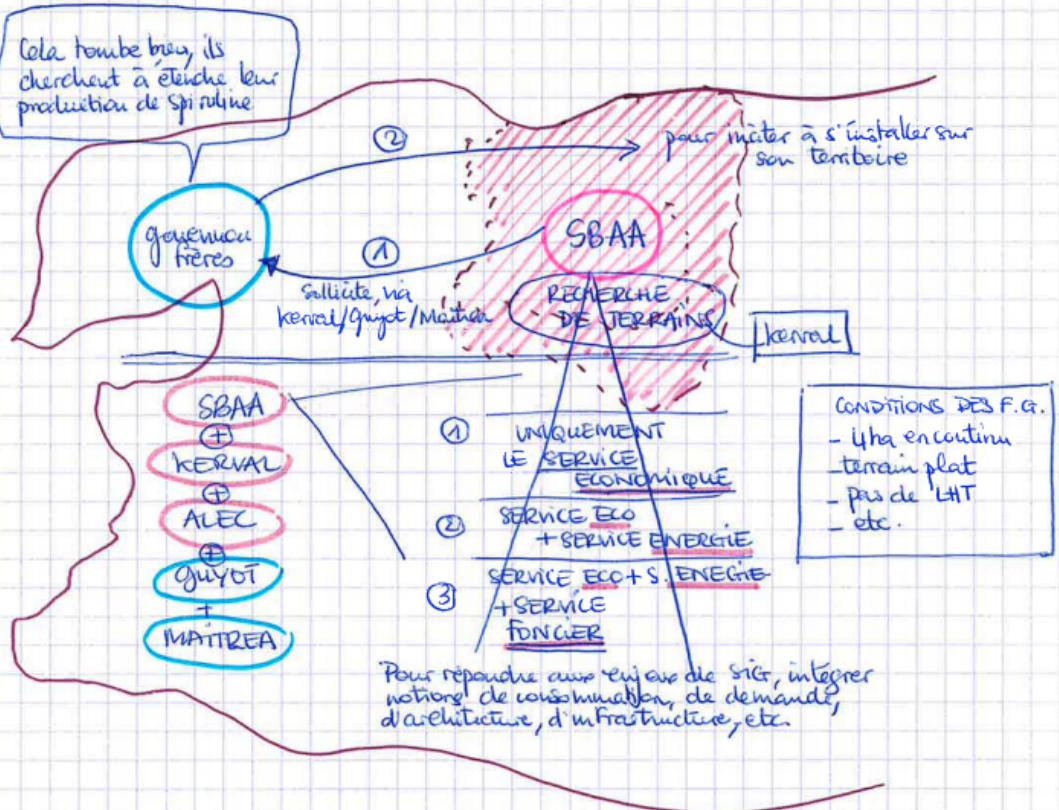 Cela tombe bien, ils
cherchent à étendre leur
production de spiruline
②
pour inciter à s'installer sur
son territoire
frères
SBAA
①
sollicite, via
Kerval/Guyot/Maîtrea
RECHERCHE
DE TERRAINS
Kerval
SBAA
+
KERVAL
+
ALEC
+
GUYOT
+
MAÎTREA
① UNIQUEMENT
LE SERVICE
ECONOMIQUE
② SERVICE ECO
+ SERVICE ENERGIE
③ SERVICE ECO + S. ENEGIE
+ SERVICE
FONCIER
CONDITIONS DES F.G.
- 4ha en continu
- terrain plat
- pas de LHT
- etc.
Pour répondre aux enjeux de SIG, intégrer
notions de consommation, de demande,
d'architecture, d'infrastructure, etc.